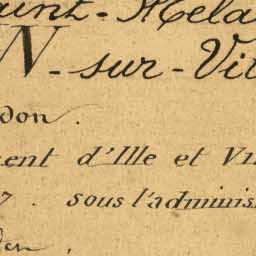 aint-Mela
N-sur-Vil
don.
ment d'Ille et Vi
7. sous l'adminis
den,